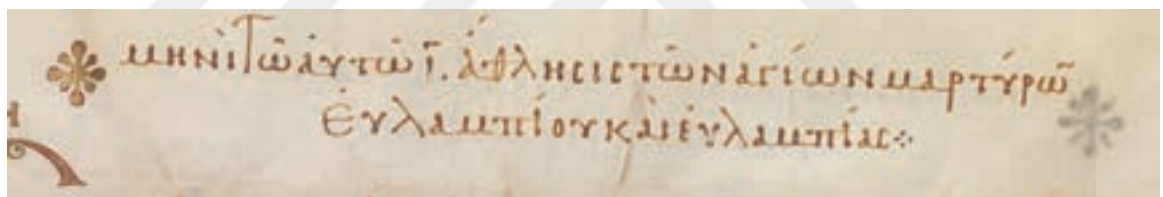 μηνὶ τῶ ἀυτῶ ι̅. ἄθλησις τῶν ἁγίων μαρτύρω̅
Ἐυλαμπίου καὶ ἐυλαμπίας⁘